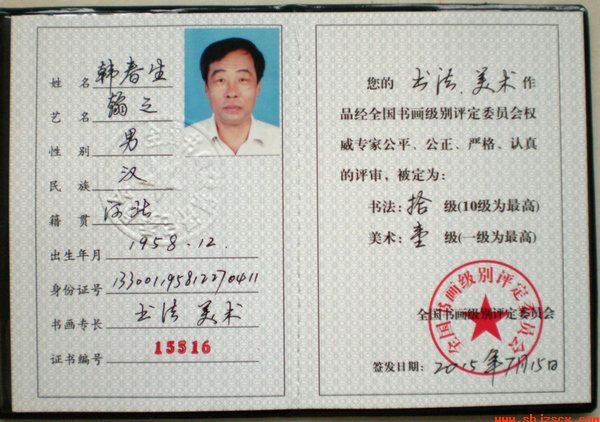 姓名 韩春生
艺名 瀚之
性别 男
民族 汉
籍贯 河北
出生年月 1958.12.
身份证号
书画专长 书法 美术
证书编号 15516
您的 书法.美术 作
品经全国书画级别评定委员会权
威专家公平、公正、严格、认真
的评审，被定为：
书法: 拾 级(10级为最高)
美术: 壹 级(一级为最高)
全国书画级别评定委员会
全国书画级别评定委员会
签发日期: 2015年7月15日
www.shjzscx.com